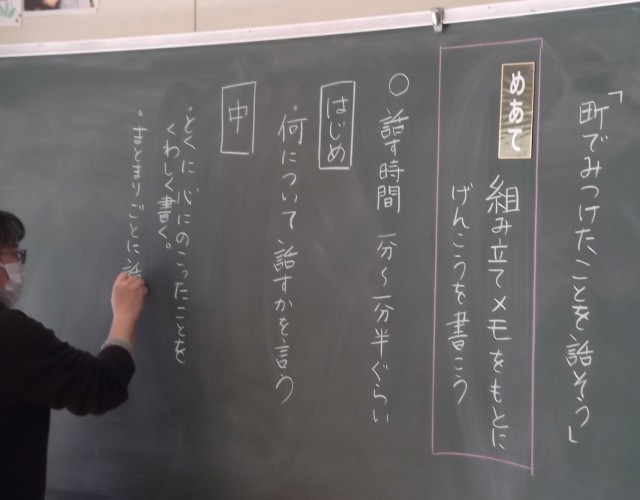 「町でみつけたことを話そう」
めあて
組み立てメモをもとに
げんこうを書こう
○話す時間 一分～一分半ぐらい
はじめ
・何について話すかを言う
中
・とくに心にのこったことを
くわしく書く。
・まとまりごとに話